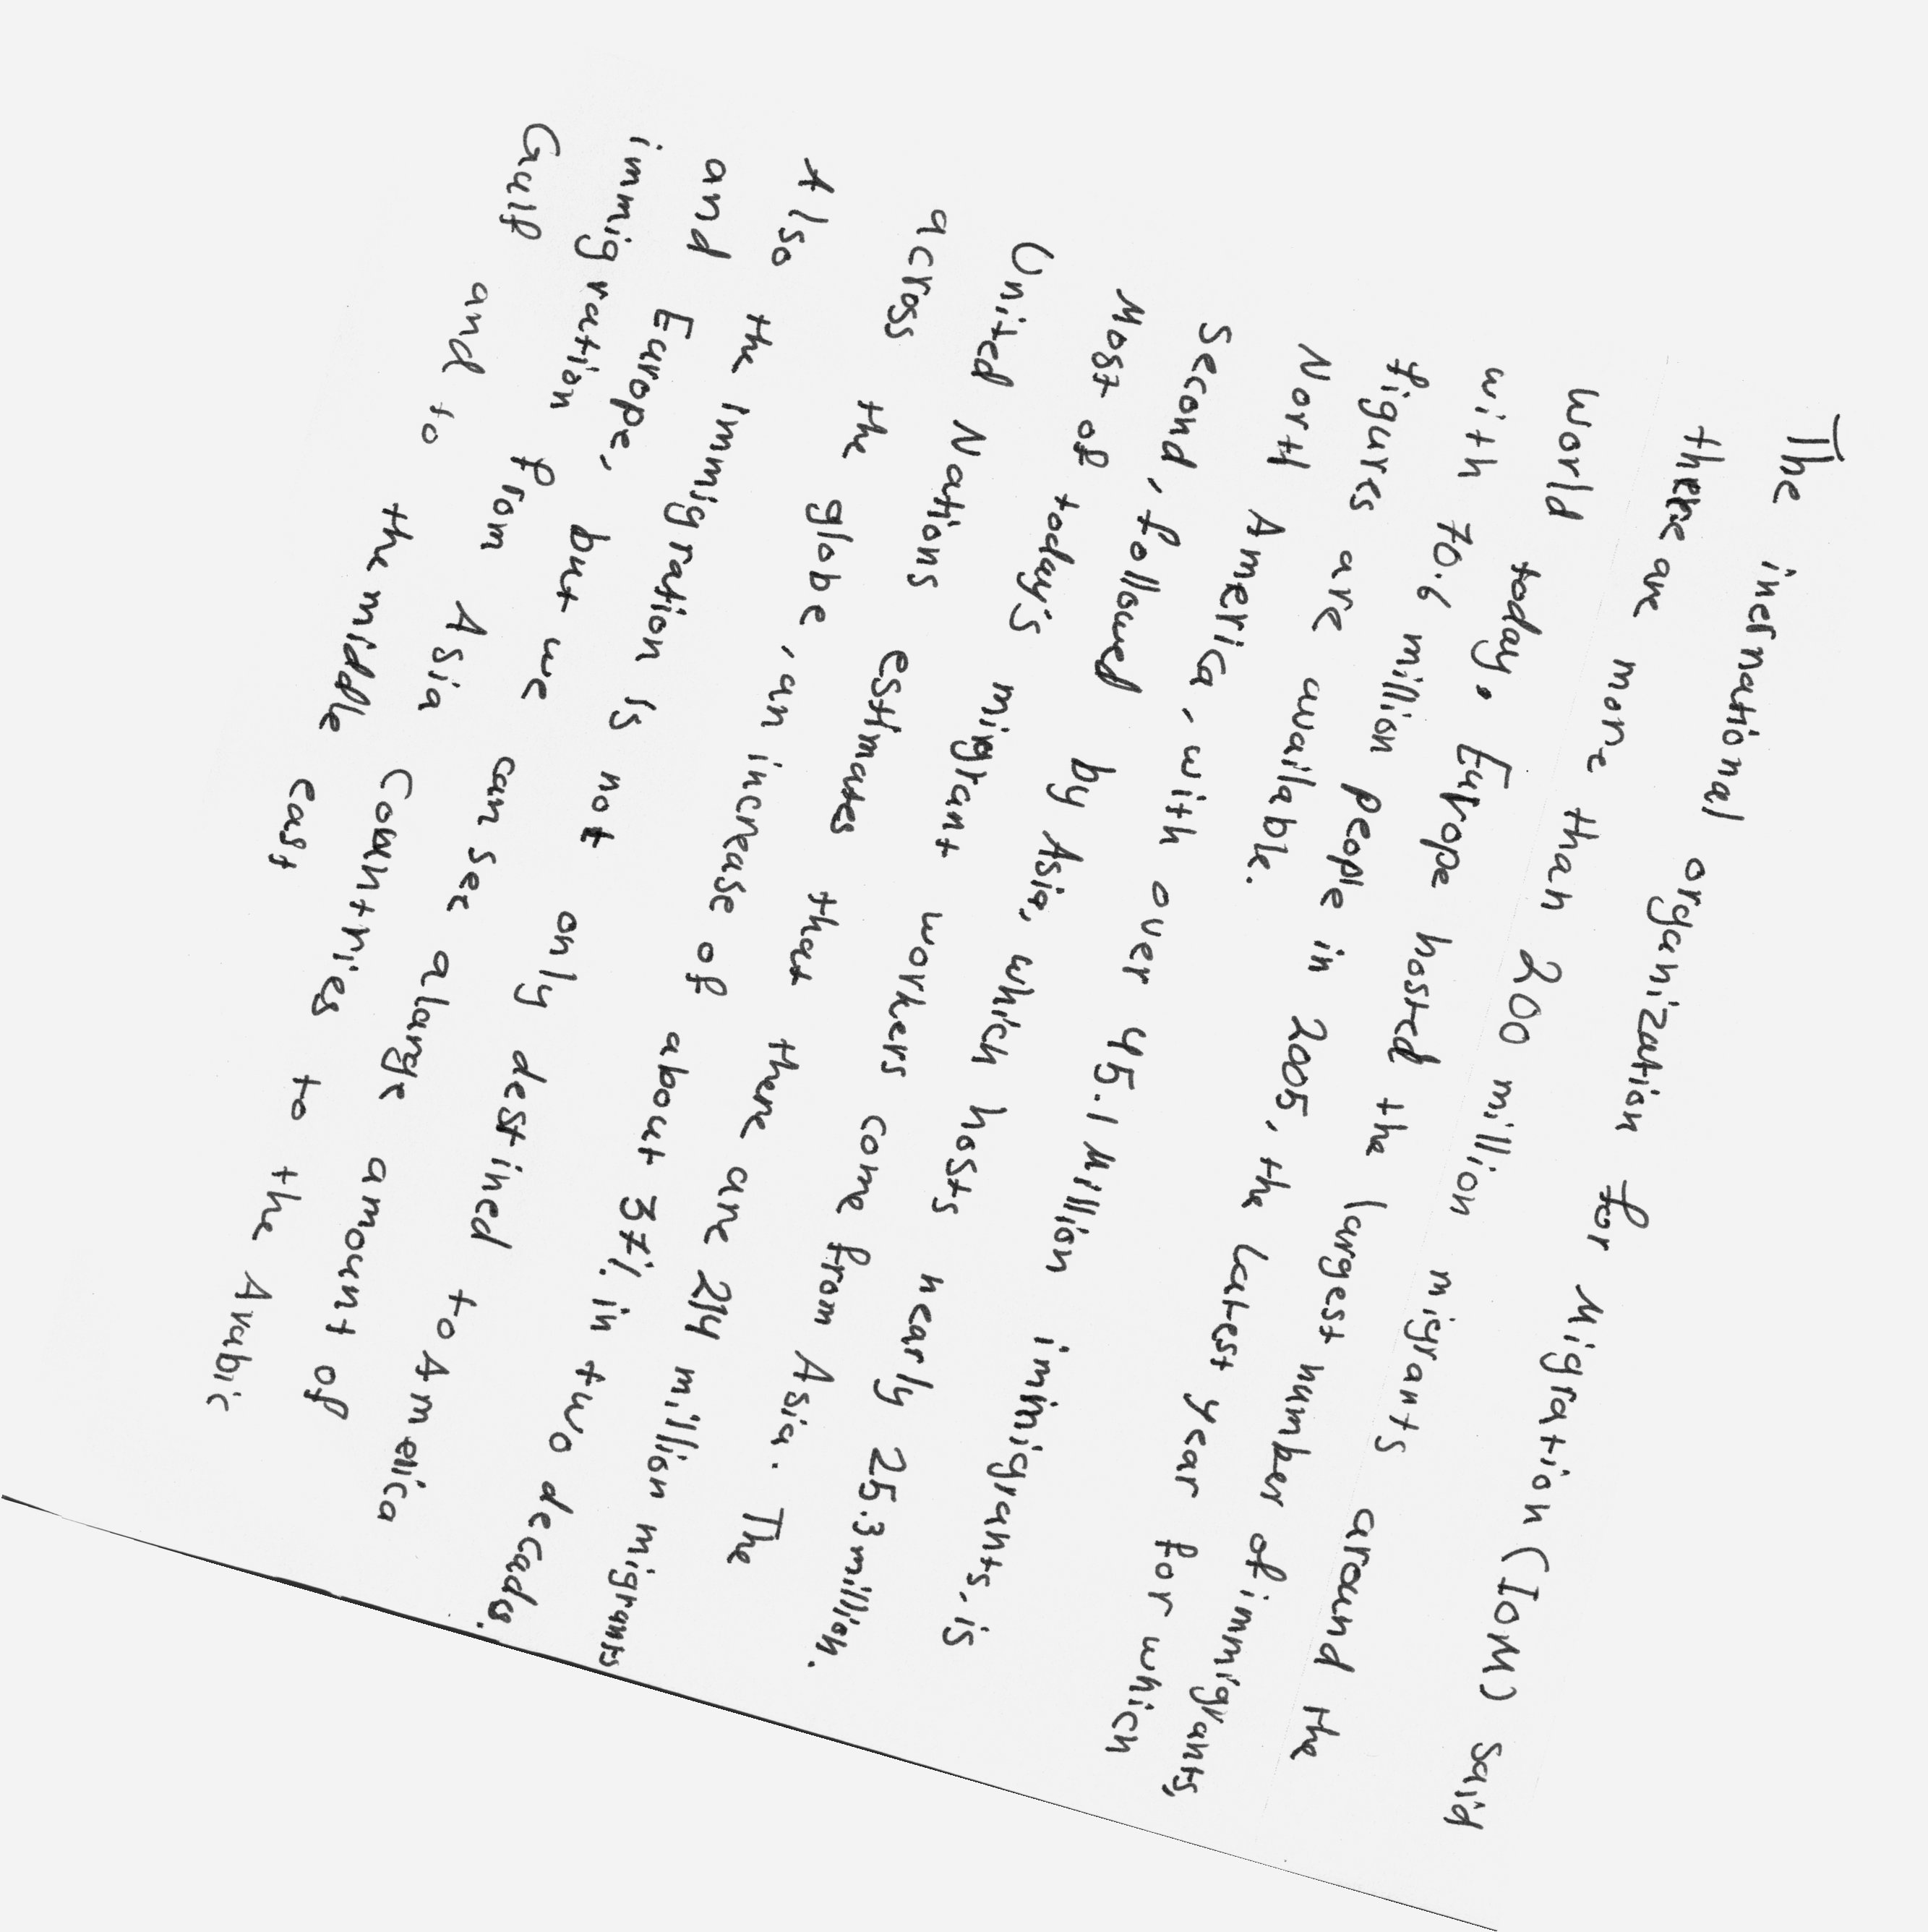 The inernational organization for Migration (IOM) said
there are more than 200 million migrants around the
World today. Europe hosted the largest number of immigrants,
with 70.6 million people in 2005, the latest year for which
figures are available.
North America, with over 45.1 Million immigrants, is
Second, followed by Asia, which hosts nearly 25.3 million.
Most of today's migrant workers come from Asia. The
United Nations estimates that there are 214 million migrants
across the globe, an increase of about 37% in two decads.
Also the Immigration is not only destined to America
and Europe, but we can see a large amount of
immigration from Asia Countries to the Arabic
Gulf and to the middle east